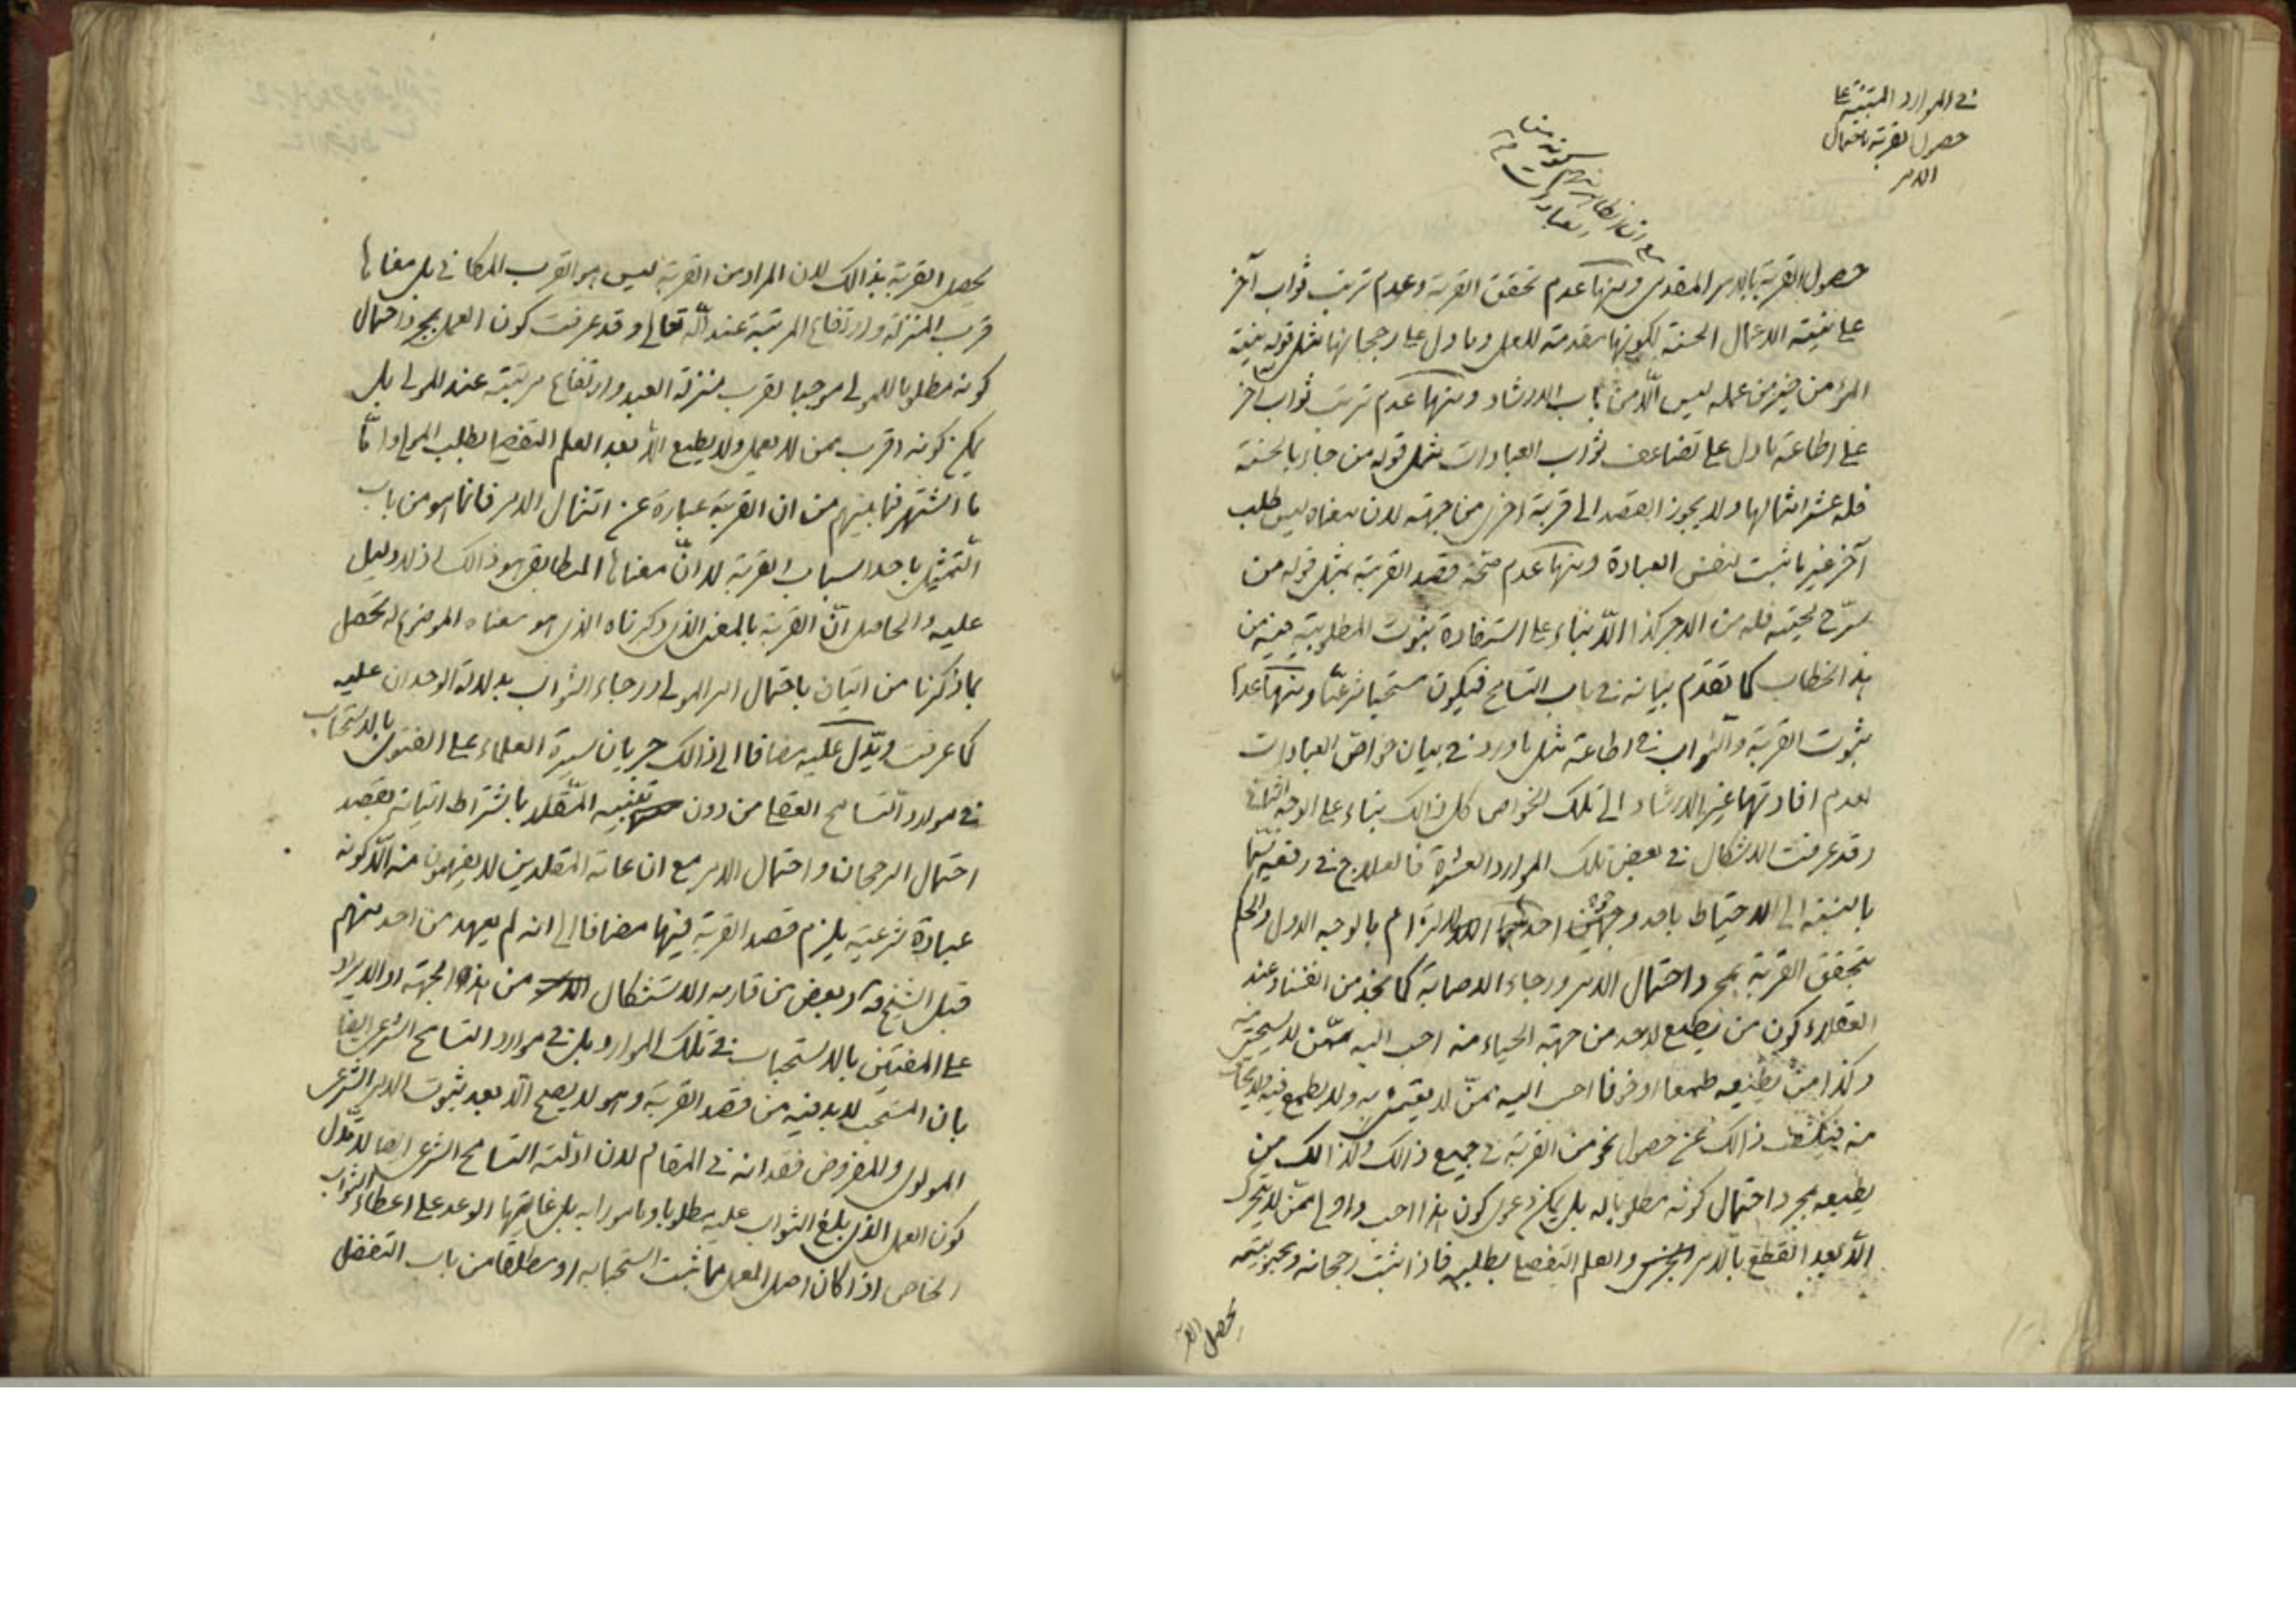 في الموارد المبتنية على
حصول القربة باحتمال
الامر
مع ان الظاهر منهم كونه من
العبادات
حصول القربة بالامر المقدمي ومنها عدم تحقق القربة وعدم ترتب ثواب آخر
على نية الاعمال الحسنة لكونها مقدمة للعمل وما دل على رجحانها مثل قوله نية
المؤمن خير من عمله ليس الّا من باب الارشاد ومنها عدم ترتب ثواب آخر
على اطاعة ما دل على تضاعف ثواب العبادات مثل قوله من جاء بالحسنة
فله عشر امثالها ولا يجوز القصد الى قربة اخرى من جهته لان معناه ليس طلب
آخر غير ما ثبت لنفس العبادة ومنها عدم صحّة قصد القربة بمثل قوله من
سرّح لحيته فله من الاجر كذا الّا بناء على استفادة ثبوت المطلوبية فيه من
هذا الخطاب كما تقدّم بيانه في باب التسامح فيكون مستحبا شرعيّا ومنها عدم
ثبوت القربة والثواب في اطاعة مثل ما ورد في بيان خواص العبادات
لعدم افادتها غير الارشاد الى تلك الخواص كل ذالك بناء على الوجه الثاني
وقد عرفت الاشكال في بعض تلك الموارد العشرة فالعلاج في رفعه سيّما
بالنسبة الى الاحتياط باحد وجهين احدهما الالتزام بالوجه الاول والحكم
بتحقق القربة بمجرد احتمال الامر ورجاء الاصابة كما نجد من انفسنا وعند
العقلاء كون من يطيع لاحد من جهة الحياء منه احب اليه ممّن لا يستحيى منه
وكذا من يطيعه طمعا او خوفا احب اليه ممّن لا يعتنى به ولا يطمع فيه ولا يخاف
منه فيكشف ذالك عن حصول نحو من القربة في جميع ذالك وكذالك من
يطيعه بمجرد احتمال كونه مطلوبا له بل يمكن دعوى كون هذا احب واولى ممّن لا يتحرك
الّا بعد القطع بالامر والعلم التفصيلي بطلبه فاذا ثبت رجحانه ومحبوبيته
يحصل القربة
يحصل القربة بذالك لان المراد من القربة ليس هو القرب المكاني بل معناها
قرب المنزلة وارتفاع المرتبة عند اللّه تعالى وقد عرفت كون العمل بمجرد احتمال
كونه مطلوبا للمولى موجبا لقرب منزلة العبد وارتفاع مرتبته عند المولى بل
يمكن كونه اقرب ممن لا يعمل ولا يطيع الّا بعد العلم التفصيلي بطلب المولى وامّا
ما اشتهر فيما بينهم من ان القربة عبارة عن امتثال الامر فانما هو من باب
التمثيل باحد اسباب القربة لا انّ معناها المطابقي هو ذالك اذ لا دليل
عليه والحاصل انّ القربة بالمعنى الذي ذكرناه الذي هو معناه الموضوع له يحصل
بما ذكرنا من اتيان باحتمال امر المولى ورجاء الثواب بدلالة الوجدان عليه
كما عرفت ويدّل عليه مضافا الى ذالك جريان سيرة العلماء على الفتوى بالاستحباب
في موارد التسامح العقلي من دون تنبيه المقلد باشتراط اتيانه بقصد
احتمال الرجحان واحتمال الامر مع ان عامة المقلدين لا يفهمون منه الّا كونه
عبادة شرعية يلزم قصد القربة فيها مضافا الى انه لم يعهد من احد منهم
قبل الشيخ ره وبعض من قاربه الاستشكال من هذه الجهة او الايراد
على المفتين بالاستحباب في تلك الموارد بل في موارد التسامح الشرعي ايضا
بان المستحب لا بد فيه من قصد القربة وهو لا يصح الّا بعد ثبوت الامر الشرعي
المولوى والمفروض فقدانه في المقام لان ادلّة التسامح الشرعي ايضا لا تدل
كون العمل الذي بلغ الثواب عليه مطلوبا ومامورا به بل غايتها الوعد على اعطاء الثواب
الخاص اذا كان اصل العمل مما ثبت استحبابه او مطلقا من باب التفضل